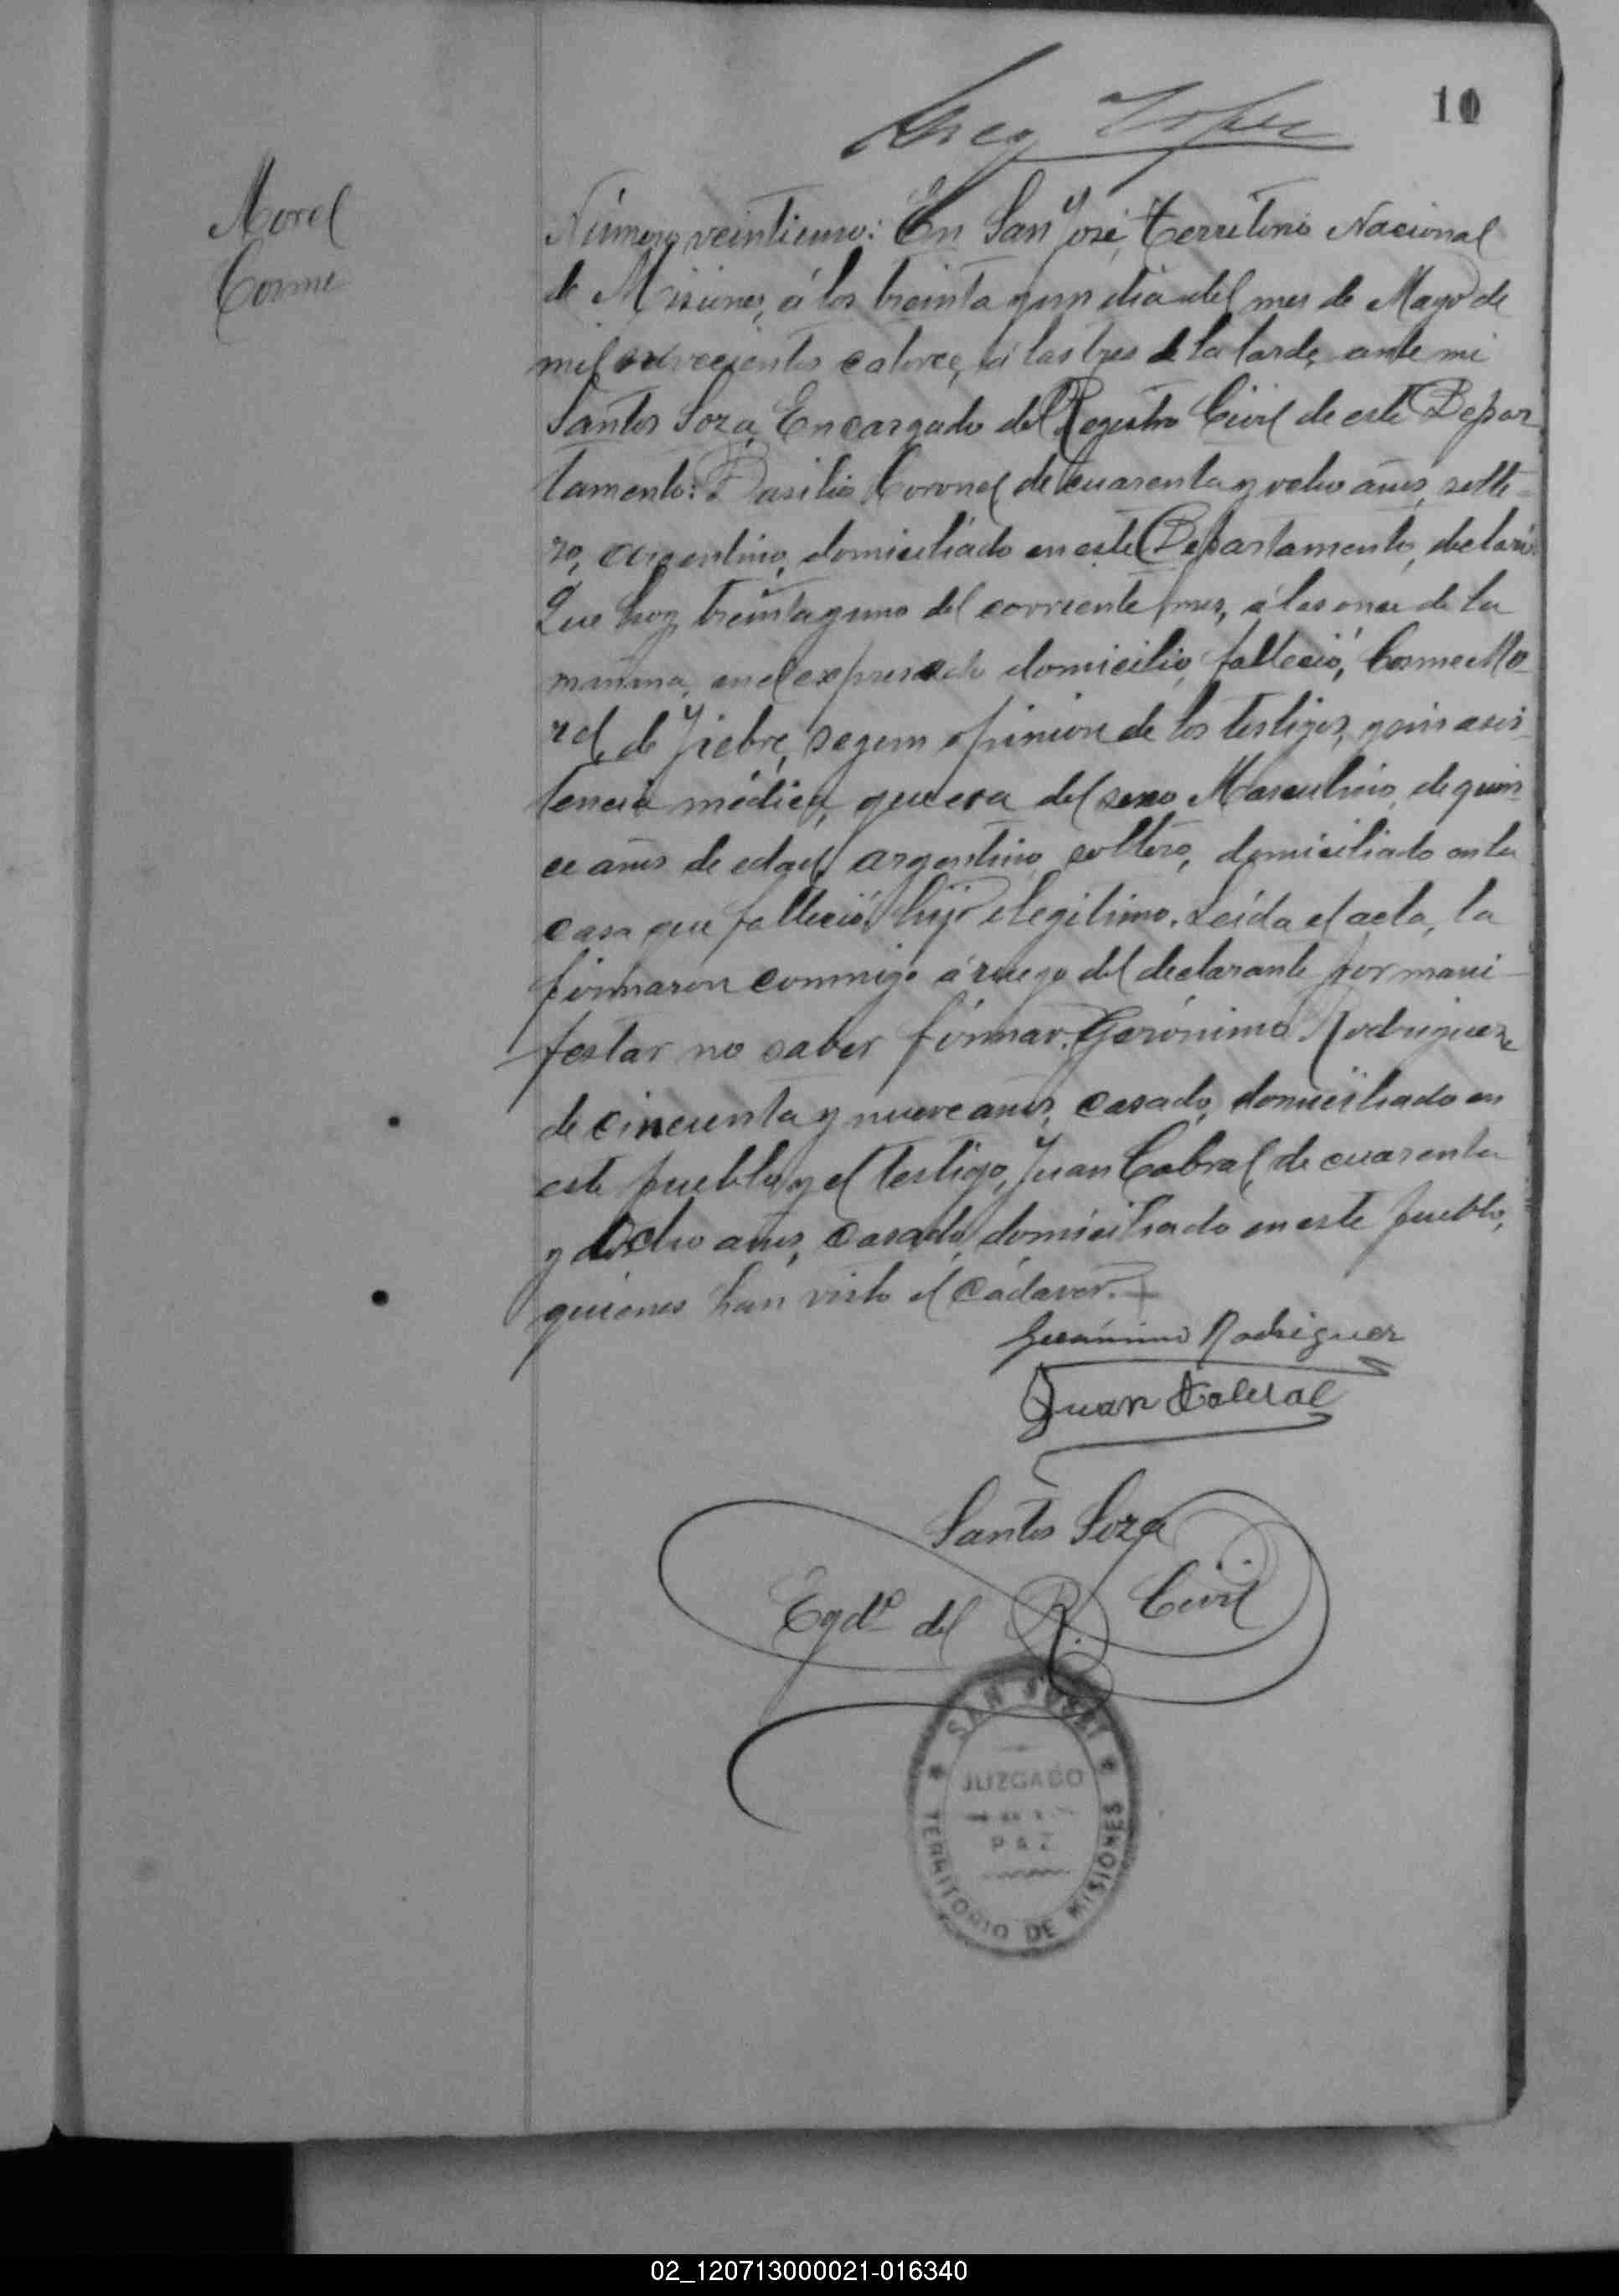 10
Morel
Cosme
Número veintiuno: En San José, Territorio Nacional
de Misiones, á los treinta y un dia del mes de Mayo de
mil novecientos catorce, á las tres de la tarde, ante mi
Santos Soza, Encargado del Registro Civil de este Depar
tamento: Basilio Coronel de cuarenta y ocho años, solte-
ro, argentino, domiciliado en este Departamento, declaró:
Que hoy, treinta y uno del corriente mes, á las once de la
mañana, en el expresado domicilio, falleció, Cosme Mo-
rel, de Fiebre, segun opinion de los testigos, y sin asis-
tencia médica, que era del sexo Masculino, de quin-
ce años de edad, argentino, soltero, domiciliado en la
casa que falleció, hijo ilegitimo. Leída el acta, la
firmaron conmigo á ruego del declarante por mani-
festar no saber firmar, Gerónimo Rodriguez,
de cincuenta y nueve años, casado, domiciliado en
este pueblo y el testigo, Juan Cabral, de cuarenta
y ocho años, casado, domiciliado en este pueblo,
quienes han visto el cádaver.—
Gerónimo Rodriguez
Juan Cabral
Santos Soza
Egdo del R. Civil
SAN JOSÉ
JUZGADO
PAZ
TERRITORIO DE MISIONES
02_120713000021-016340